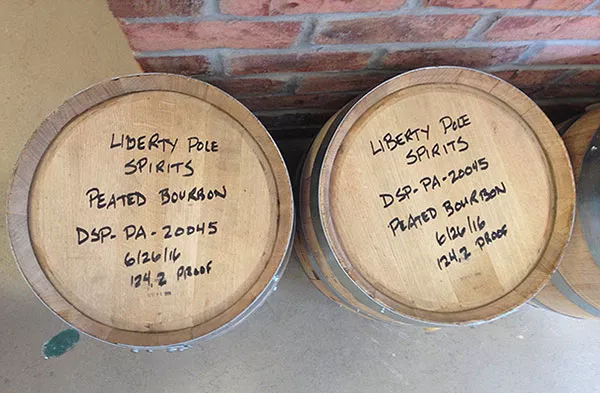 LIBERTY POLE
SPIRITS
PEATED BOURBON
DSP-PA-20045
6/26/16
124.2 PROOF
LIBERTY POLE
SPIRITS
DSP-PA-20045
PEATED BOURBON
6/26/16
124.2 PROOF